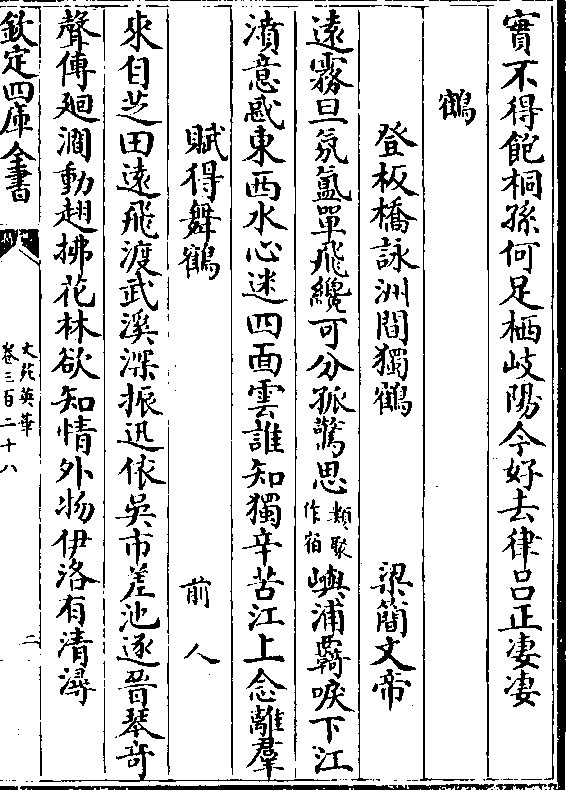 實不得飽桐孫何足栖岐陽今好去律呂正淒淒
鶴
登板橋詠洲間獨鶴　梁簡文帝
遠霧旦氛氳單飛纔可分孤驚思類聚作宿嶼浦羇唳下江
濆意惑東西水心迷四面雲誰知獨辛苦江上念離羣
賦得舞鶴　前人
來自芝田遠飛渡武溪深振迅依吳市差池逐晉琴竒
聲傳廻澗動翅拂花林欲知情外物伊洛有清潯
欽定四庫全書
文苑英華
卷三百二十八
二